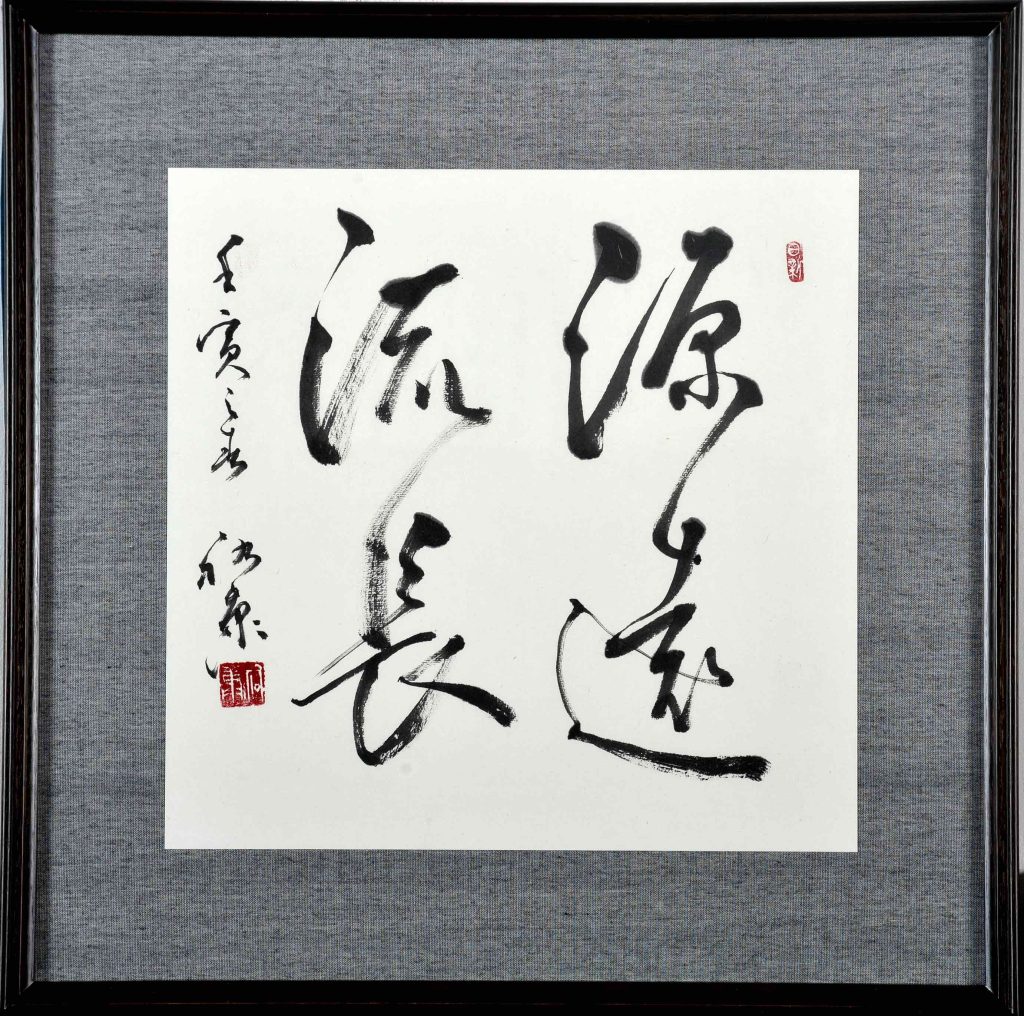 源遠
流長
壬寅之春
日新